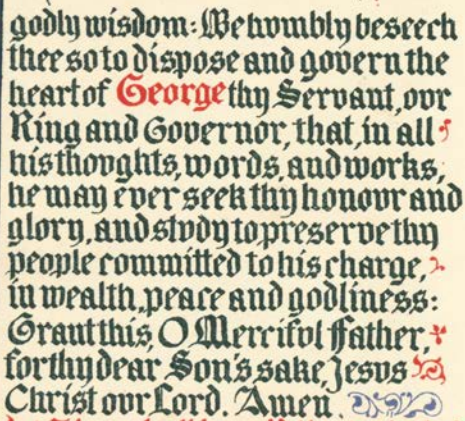 godly wisdom: We humbly beseech
thee so to dispose and govern the
heart of George thy Servant, our
King and Governor, that, in all
his thoughts, words, and works,
he may ever seek thy honour and
glory, and study to preserve thy
people committed to his charge,
in wealth, peace and godliness:
Grant this, O Merciful Father,
for thy dear Son's sake, Jesus
Christ our Lord. Amen.